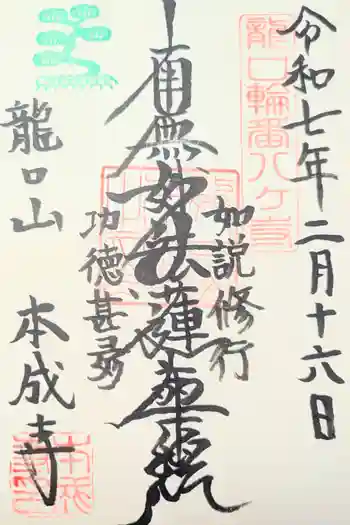 令和七年二月十六日
龍口輪番八ケ寺
如説修行
南無妙法蓮華経
功徳甚多
龍口山
本成寺